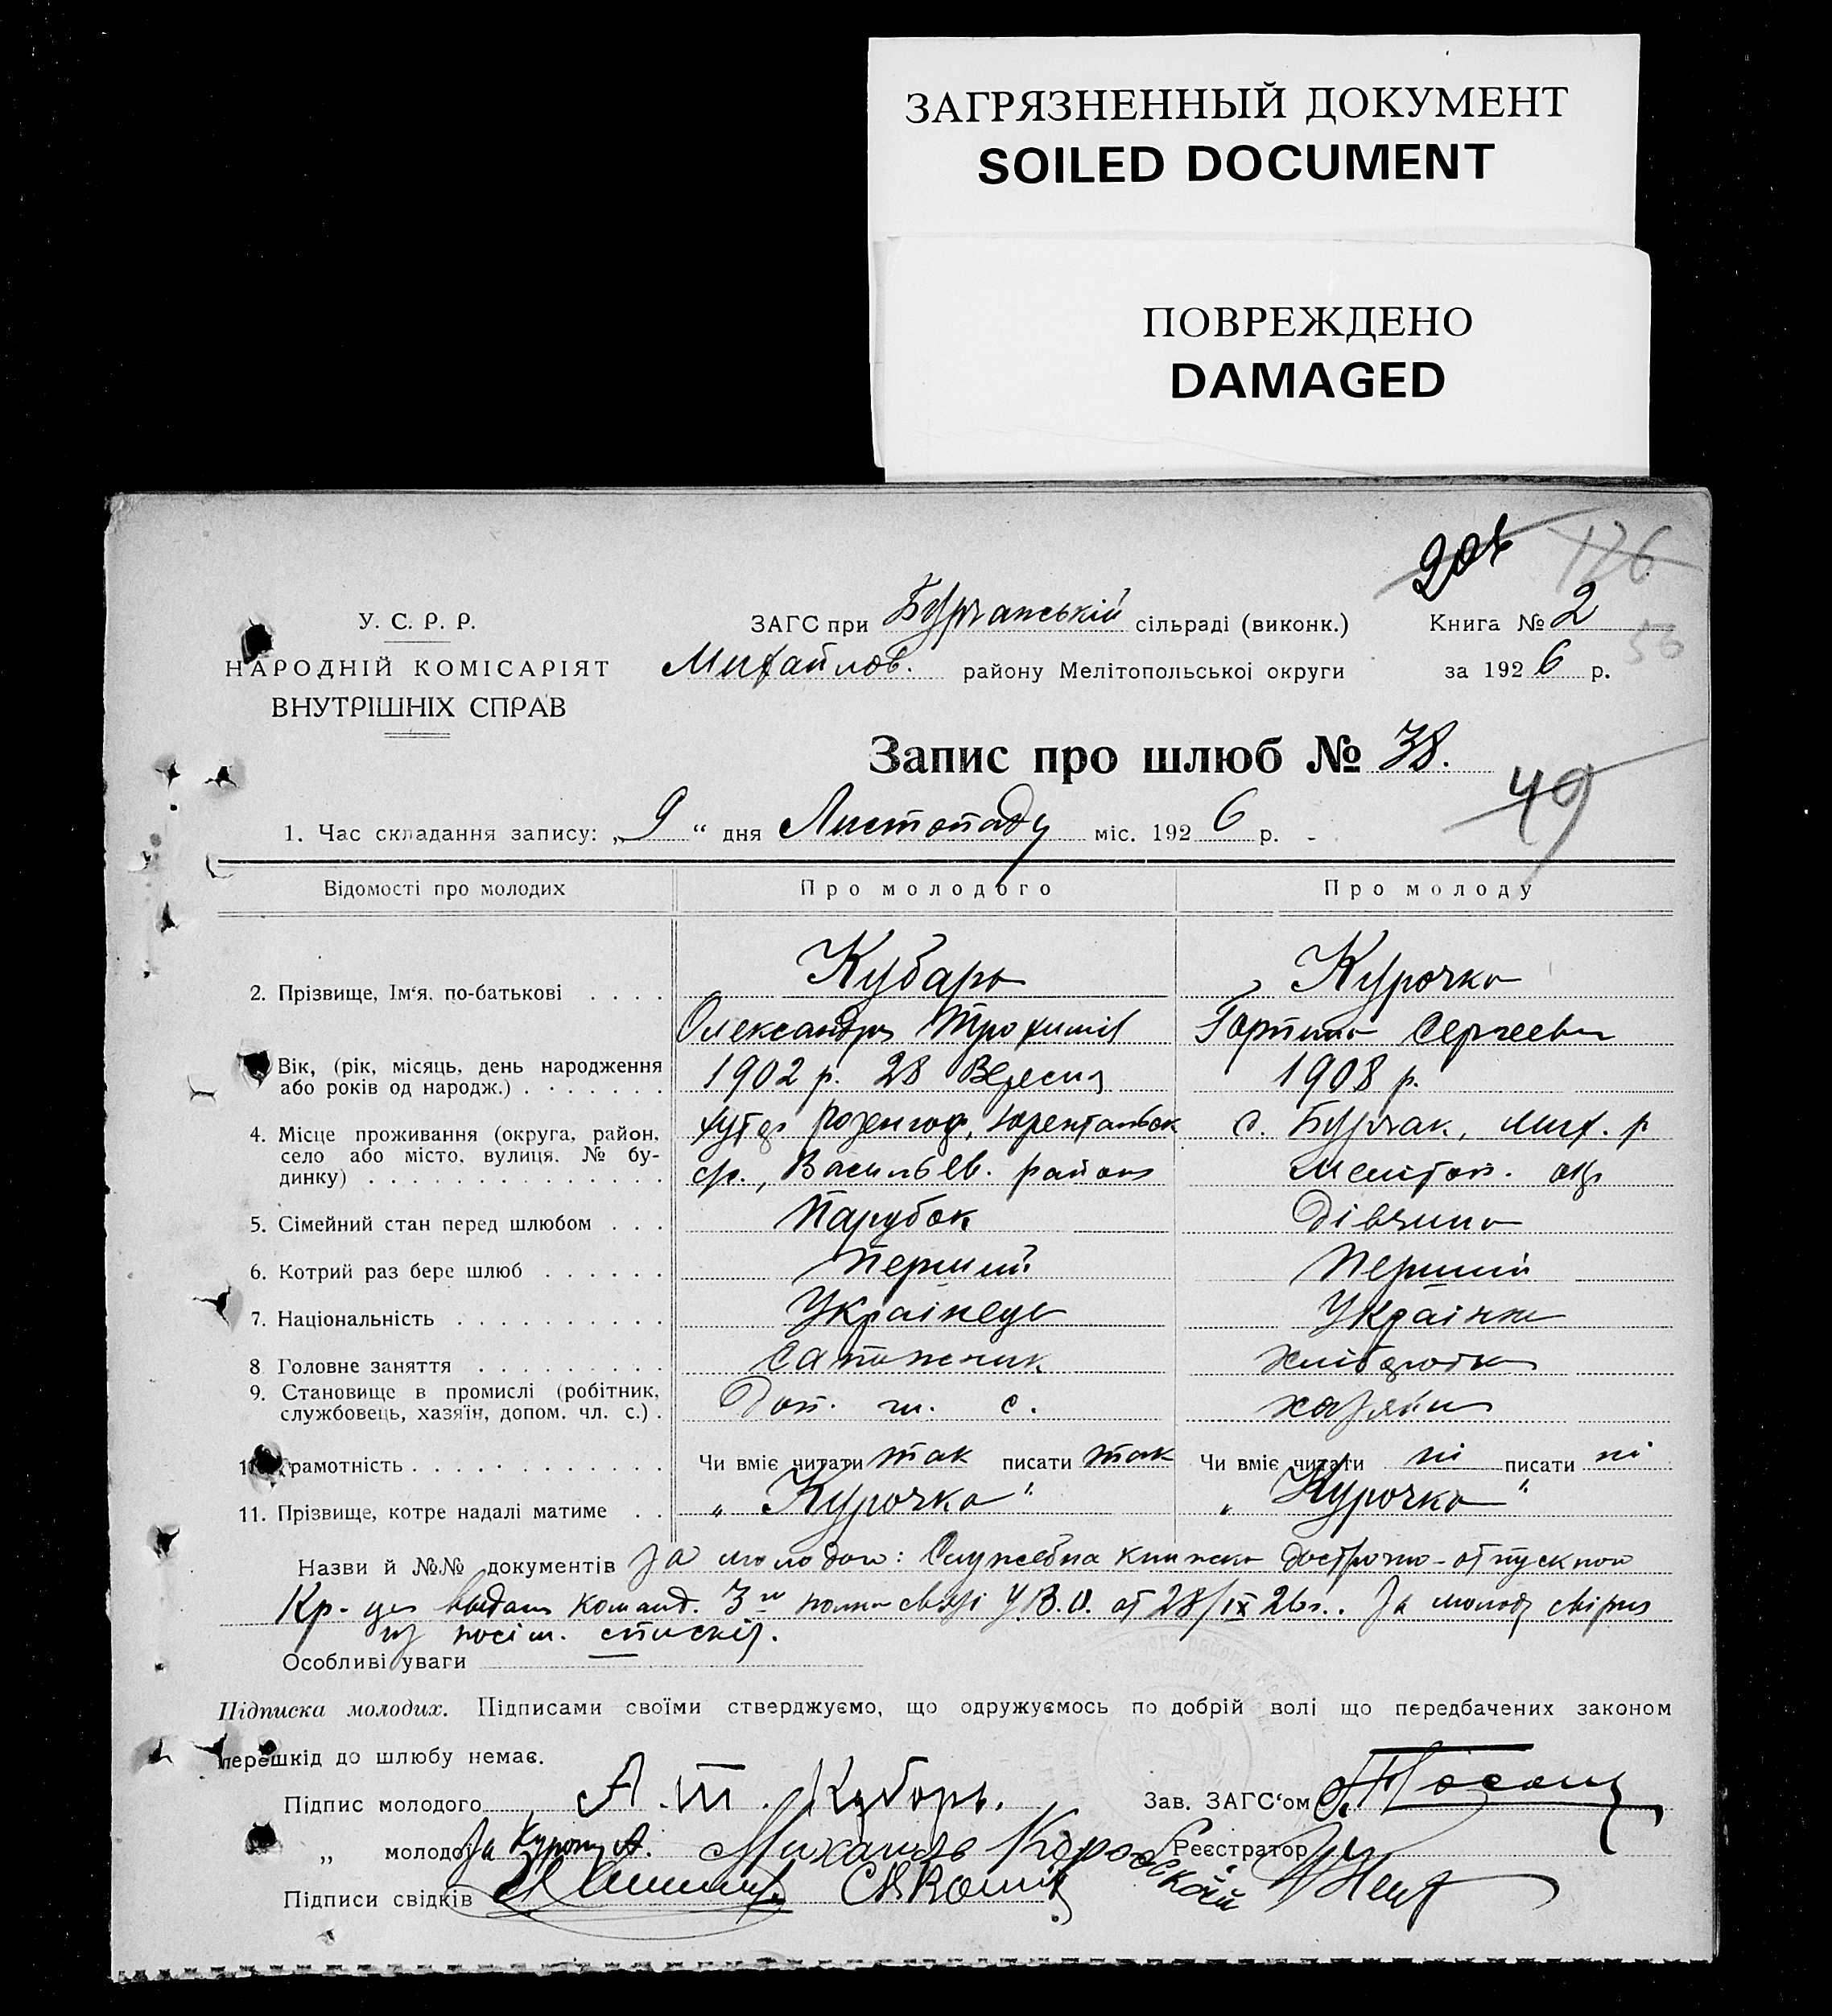 ЗАГРЯЗНЕННЫЙ ДОКУМЕНТ
SOILED DOCUMENT
ПОВРЕЖДЕНО
DAMAGED
126
У. С. Р. Р.
ЗАГС при Бурчанській сільраді (виконк.)
Книга № 2
56
НАРОДНІЙ КОМІСАРІЯТ
Михайлов. району Мелітопольської округи
за 1926 р.
ВНУТРІШНІХ СПРАВ
Запис про шлюб № 38.
49
1. Час складання запису: „9“ дня Листопаду міс. 1926 р.
Відомості про молодих
Про молодого
Про молоду
2. Прізвище, Ім'я. по-батькові
Кубарь
Курочка
Олександр Трохимів
Сергеевна
Вік, (рік, місяць, день народження
або років од народж.)
1902 р. 28 Вересня
1908 р.
4. Місце проживання (округа, район,
село або місто, вулиця. № бу-
динку)
с. Бурчак, Мих. р
ср., Васильев. району
Мелітоп. окр
5. Сімейний стан перед шлюбом
Парубок
Дівчина
6. Котрий раз бере шлюб
Перший
Перший
7. Національність
Українець
Українка
8 Головне заняття
Сапожник
хлібробка
9. Становище в промислі (робітник,
службовець, хазяїн, допом. чл. с.)
Доп. чл. с.
хазяйн
рамотність
Чи вміє читати так писати так
Чи вміє читати ні писати ні
11. Прізвище, котре надалі матиме
„Курочка“
„Курочка“
Назви й №№ документів За молодого: Служебна книжка дострочно-отпускного
Кр-ця выдана команд. 3го полка связі У.В.О. от 28/IX 26 г.. За молоду свірив
из посім. списків.
Особливі уваги
Підписка молодих. Підписами своїми стверджуємо, що одружуємось по добрій волі що передбачених законом
перешкід до шлюбу немає.
Підпис молодого А. Т. Кубарь.
Зав. ЗАГС'ом
„ молодої За Курочку А. Михаиль Коровской
Реєстратор
Підписи свідків